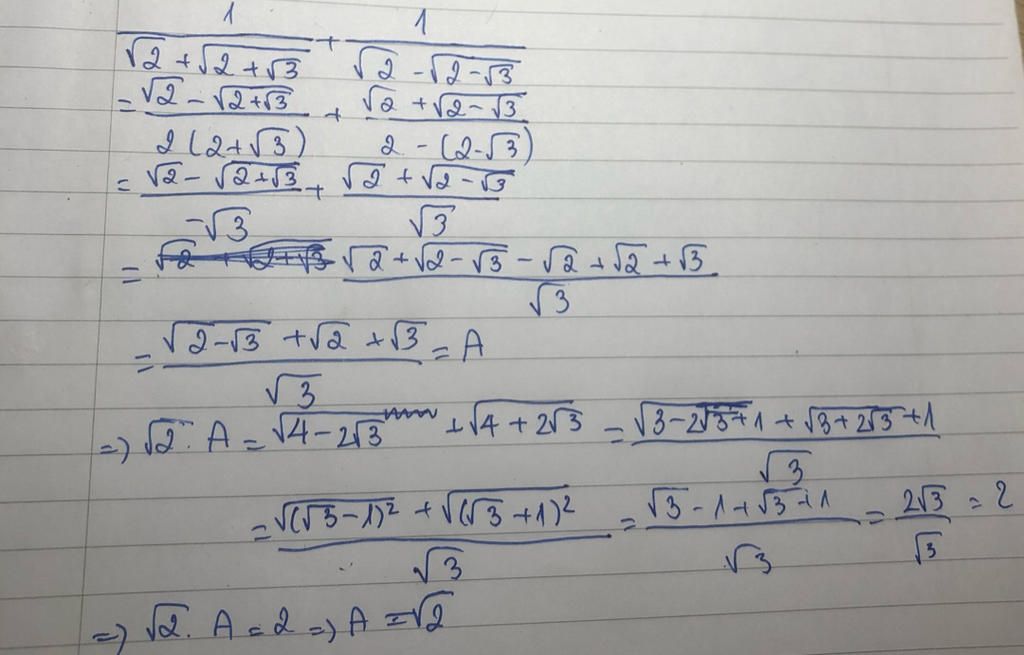 1/(√2 + √(2 + √3)) + 1/(√2 - √(2 - √3))
= (√2 - √(2+√3))/(2(2+√3)) + (√2 + √(2-√3))/(2 - (2-√3))
= (√2 - √(2+√3))/(-√3) + (√2 + √(2-√3))/√3
= (√2 + √(2-√3) - √2 + √2 + √3)/√3
= (√(2-√3) + √2 + √3)/√3 = A
=) √2. A = √(4-2√3) + √(4+2√3) = (√(3-2√3+1) + √(3+2√3+1))/√3
= (√((√3-1)²) + √((√3+1)²))/√3 = (√3 - 1 + √3 + 1)/√3 = 2√3/√3 = 2
=) √2. A = 2 =) A = √2